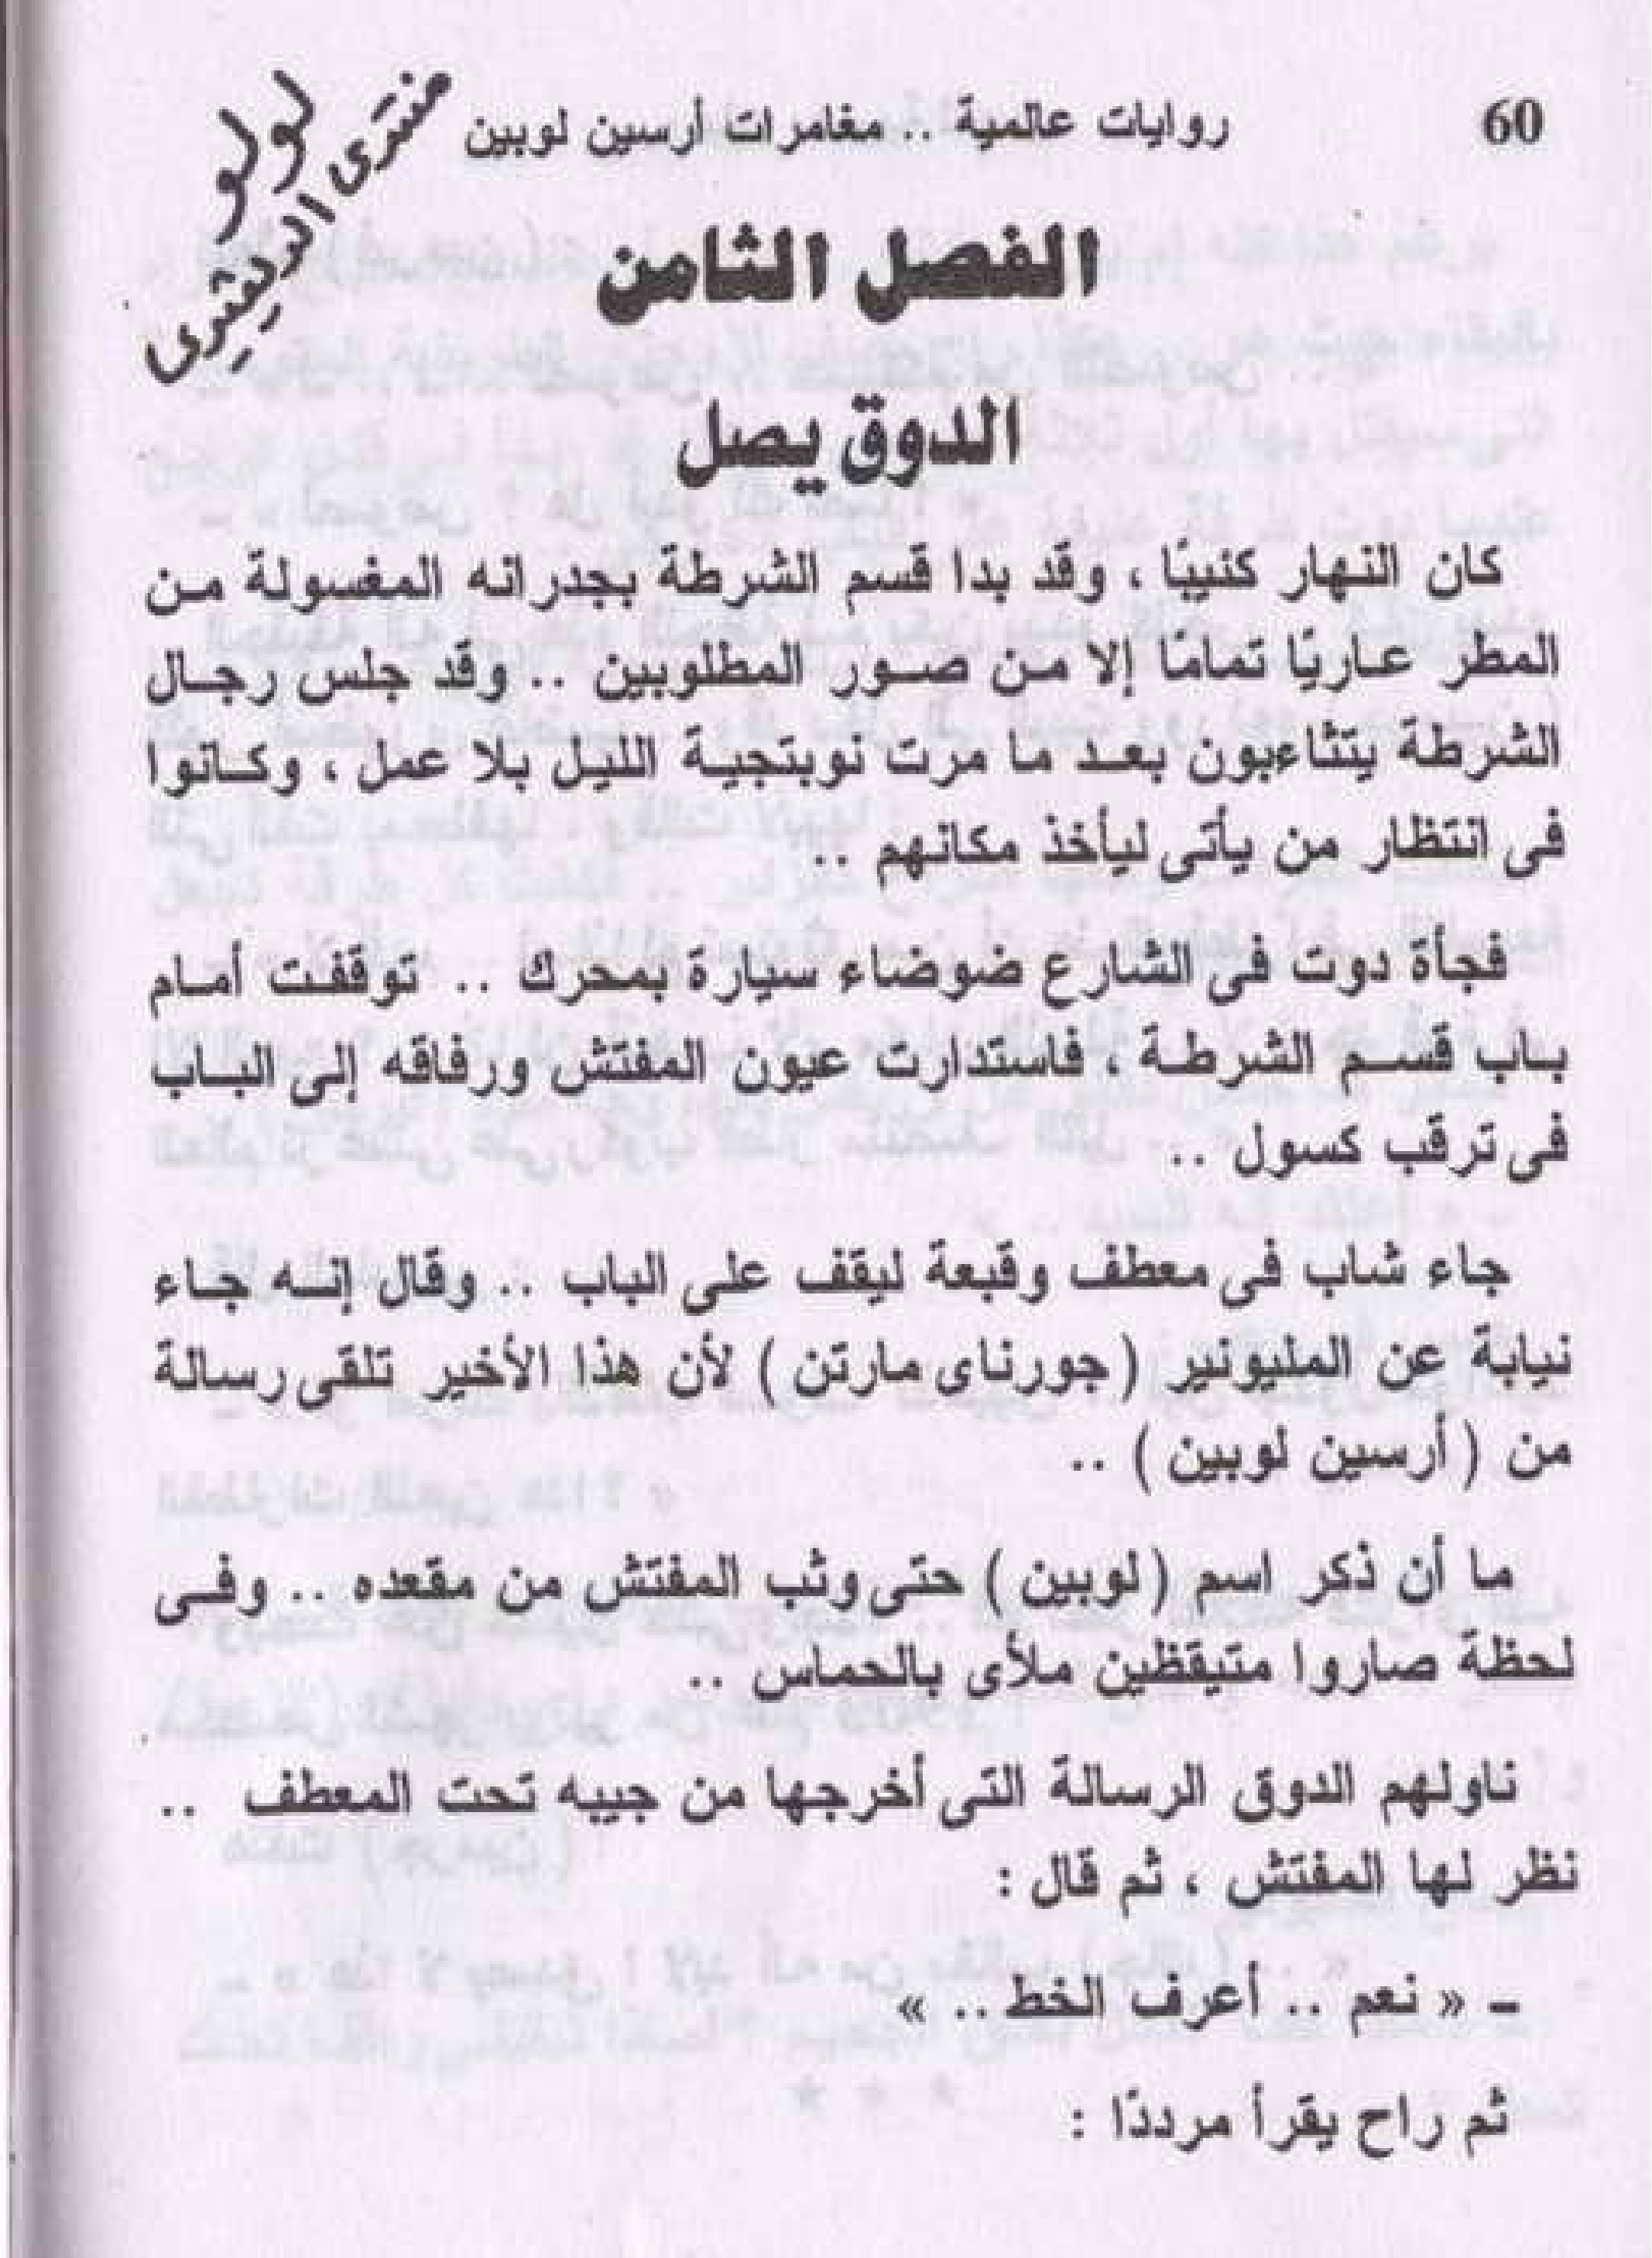 60
روايات عالمية .. مغامرات أرسين لوبين
لولو
منتدى الديشرى
الفصل الثامن
الدوق يصل
كان النهار كئيبًا ، وقد بدا قسم الشرطة بجدرانه المغسولة من
المطر عاريًا تمامًا إلا من صور المطلوبين .. وقد جلس رجال
الشرطة يتثاءبون بعد ما مرت نوبتجية الليل بلا عمل ، وكانوا
فى انتظار من يأتى ليأخذ مكانهم ..
فجأة دوت فى الشارع ضوضاء سيارة بمحرك .. توقفت أمام
باب قسم الشرطة ، فاستدارت عيون المفتش ورفاقه إلى الباب
فى ترقب كسول ..
جاء شاب فى معطف وقبعة ليقف على الباب .. وقال إنه جاء
نيابة عن المليونير ( جورناى مارتن ) لأن هذا الأخير تلقى رسالة
من ( أرسين لوبين ) ..
ما أن ذكر اسم ( لوبين ) حتى وثب المفتش من مقعده .. وفى
لحظة صاروا متيقظين ملأى بالحماس ..
ناولهم الدوق الرسالة التى أخرجها من جيبه تحت المعطف ..
نظر لها المفتش ، ثم قال :
ـ « نعم .. أعرف الخط .. »
ثم راح يقرأ مرددًا :